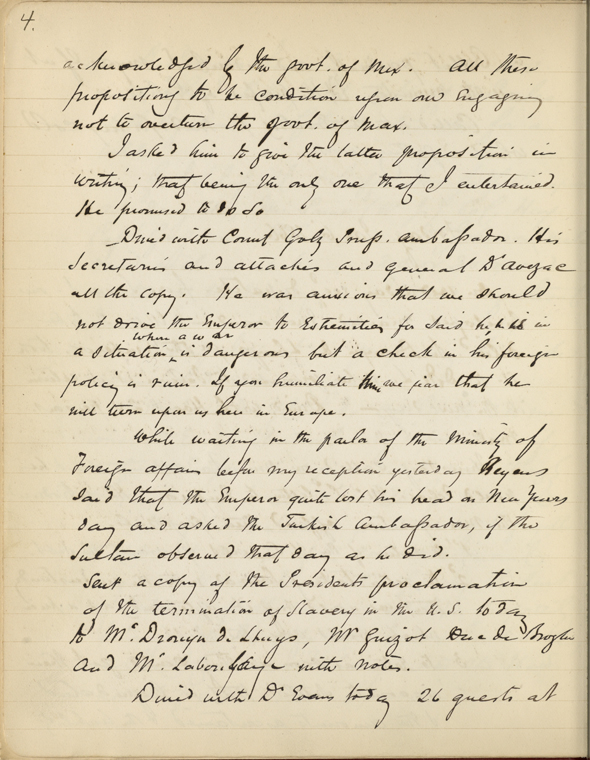 4.
acknowledged by the govt. of Mex. All these
propositions to be condition upon our Engaging
not to overturn the govt. of Max.
I asked him to give the latter proposition in
writing; that being the only one that I entertained.
He promised to do so
_Dined with Count Golz Prus. Ambassador. His
Secretaries and attachés and General D'avezac
all the copy. He was anxious that we should
not drive the Emperor to Extremities for said he, he is in
when a war
a situation is dangerous but a check in his foreign
policy is ruin. If you humiliate him we fear that he
will turn upon us here in Europe.
While waiting in the parlor of the Ministry of
Foreign affairs before my reception yesterday Heyens
said that the Emperor quite lost his head on New Years
day and asked the Turkish Ambassador, if the
Sultan observed that day as he did.
Sent a copy of the Presidents proclamation
of the termination of Slavery in the U.S. today
to Mr. Drouyn de Lhuys, Mr Guizot Duc de Broglie
and Mr. Laboulaye with notes.
Dined with Dr Evans today 26 guests at